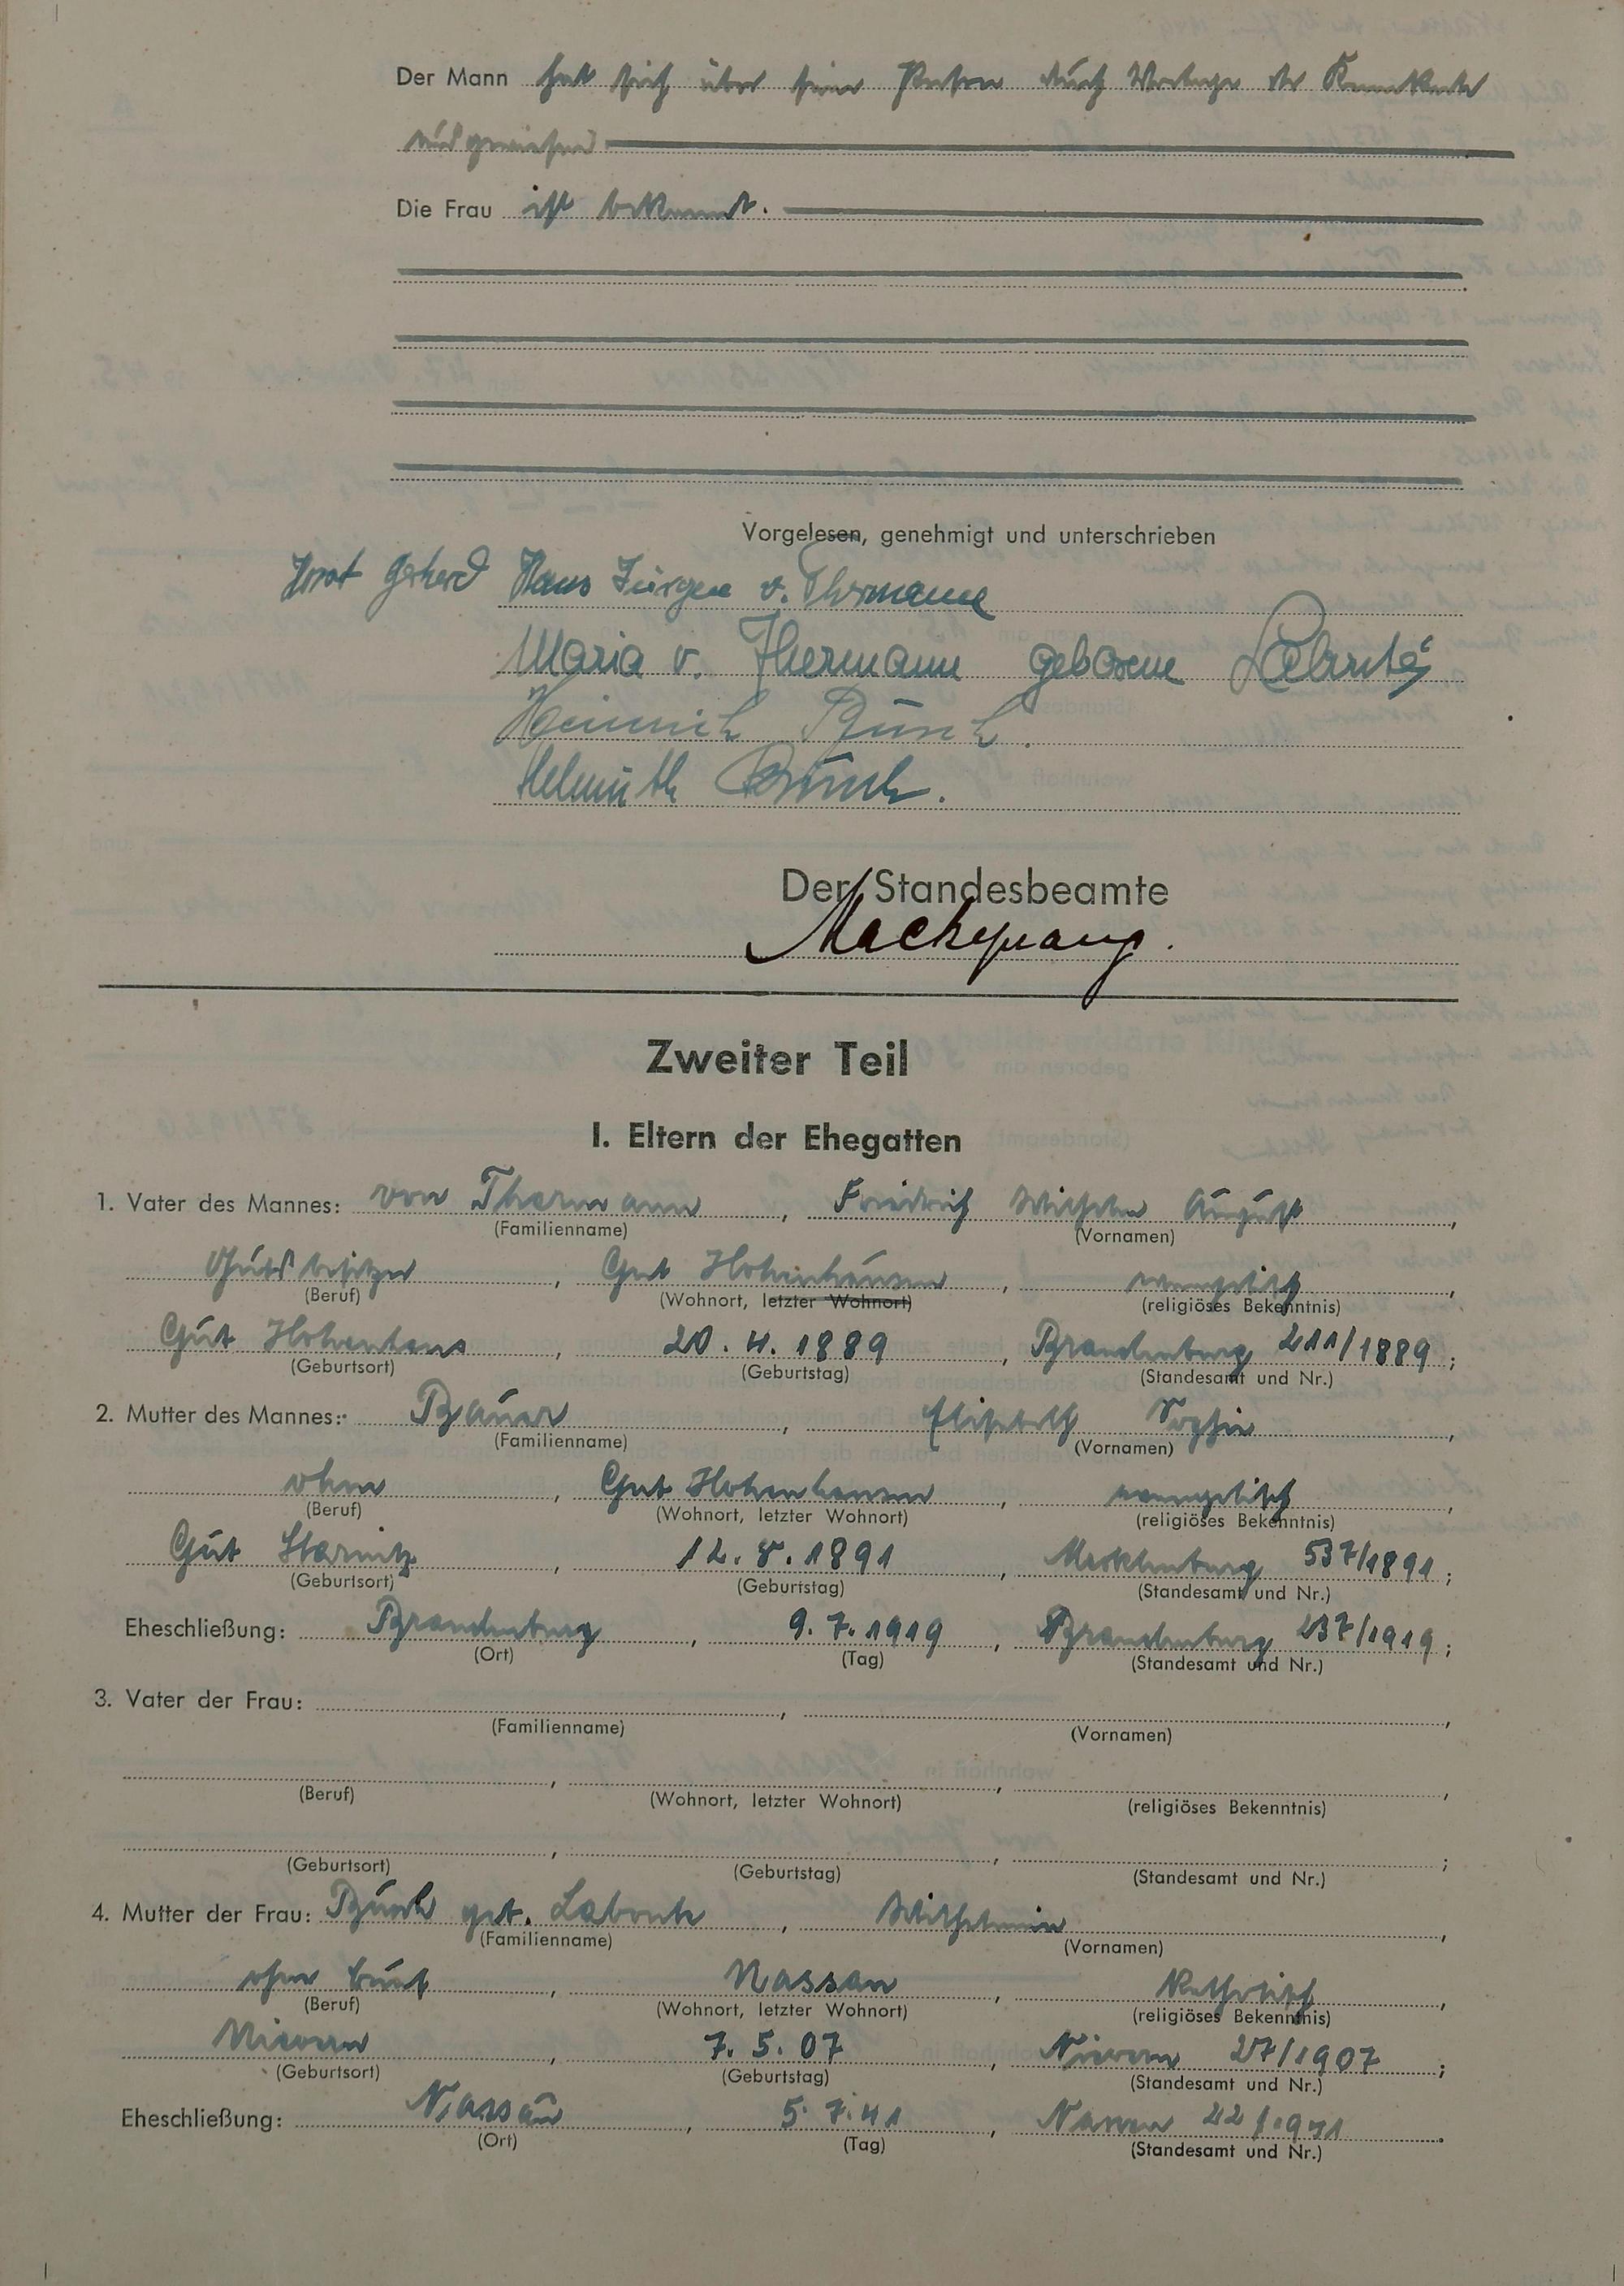 Der Mann hat sich über seine Person durch Vorlage der Kennkarte
ausgewiesen
Die Frau ist bekannt.
Vorgelesen, genehmigt und unterschrieben
Horst Gerherd Hans Jürgen v. Thermann
Maria v. Thermann geborene Labonté
Heinrich Busch.
Helmuth Busch.
Der Standesbeamte
Mackeprang.
Zweiter Teil
I. Eltern der Ehegatten
1. Vater des Mannes: von Thermann, Friedrich Wilhelm August,
(Familienname) (Vornamen)
Gutsbesitzer, Gut Hohenhausen, evangelisch,
(Beruf) (Wohnort, letzter Wohnort) (religiöses Bekenntnis)
Gut Hohenhaus, 20.4.1889, Brandenburg 211/1889;
(Geburtsort) (Geburtstag) (Standesamt und Nr.)
2. Mutter des Mannes: Bauer, Elisabeth Sophie,
(Familienname) (Vornamen)
ohne, Gut Hohenhausen, evangelisch,
(Beruf) (Wohnort, letzter Wohnort) (religiöses Bekenntnis)
Gut, 12.8.1891, Mecklenburg 537/1891;
(Geburtsort) (Geburtstag) (Standesamt und Nr.)
Eheschließung: Brandenburg, 9.7.1919, Brandenburg 237/1919;
(Ort) (Tag) (Standesamt und Nr.)
3. Vater der Frau: , ,
(Familienname) (Vornamen)
, , ,
(Beruf) (Wohnort, letzter Wohnort) (religiöses Bekenntnis)
, , ;
(Geburtsort) (Geburtstag) (Standesamt und Nr.)
4. Mutter der Frau: Busch geb. Labonte, Wilhelmine,
(Familienname) (Vornamen)
ohne Beruf, Nassau, katholisch,
(Beruf) (Wohnort, letzter Wohnort) (religiöses Bekenntnis)
Nievern, 7.5.07, Nievern 27/1907;
(Geburtsort) (Geburtstag) (Standesamt und Nr.)
Eheschließung: Nassau, 5.7.41, Nassau 22/1941.
(Ort) (Tag) (Standesamt und Nr.)